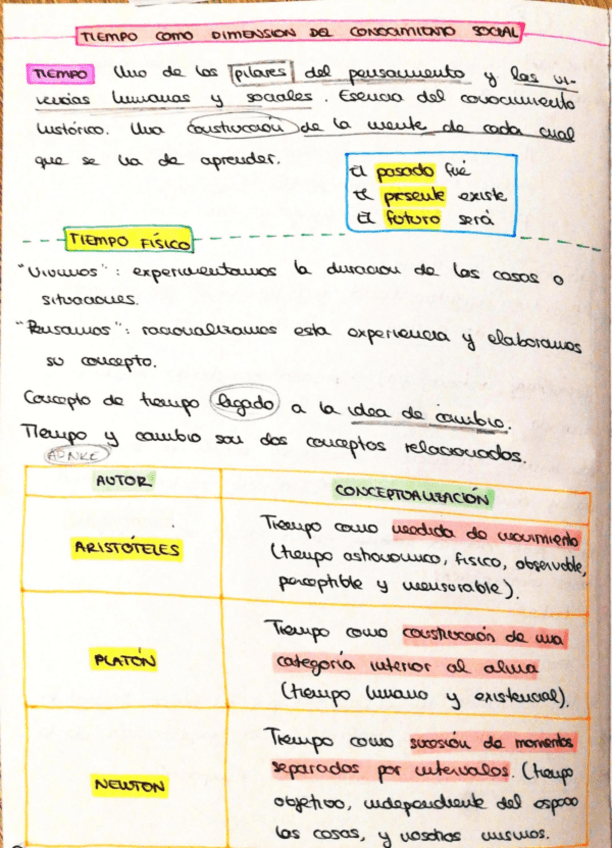 TIEMPO COMO DIMENSION DEL CONOCIMIENTO SOCIAL
TIEMPO Uno de los pilares del pensamiento y las vi-
vencias humanas y sociales. Esencia del conocimiento
histórico. Una construcción de la mente de cada cual
que se ha de aprender.
El pasado fué
El presente existe
El futuro será
TIEMPO FÍSICO
"Vivimos": experimentamos la duracion de las cosas o
situaciones.
"Pensamos": racionalizamos esta experiencia y elaboramos
su concepto.
Concepto de tiempo ligado a la idea de cambio.
Tiempo y cambio son dos conceptos relacionados.
AUTOR CONCEPTUALIZACIÓN
ARISTÓTELES
Tiempo como medida de movimiento
(tiempo astronomico, fisico, observable,
perceptible y mensurable).
PLATÓN
Tiempo como construcción de una
categoría interior al alma
(tiempo humano y existencial).
NEWTON
Tiempo como sucesión de momentos
separados por intervalos. (tiempo
objetivo, independiente del espacio
las cosas, y nosotros mismos.